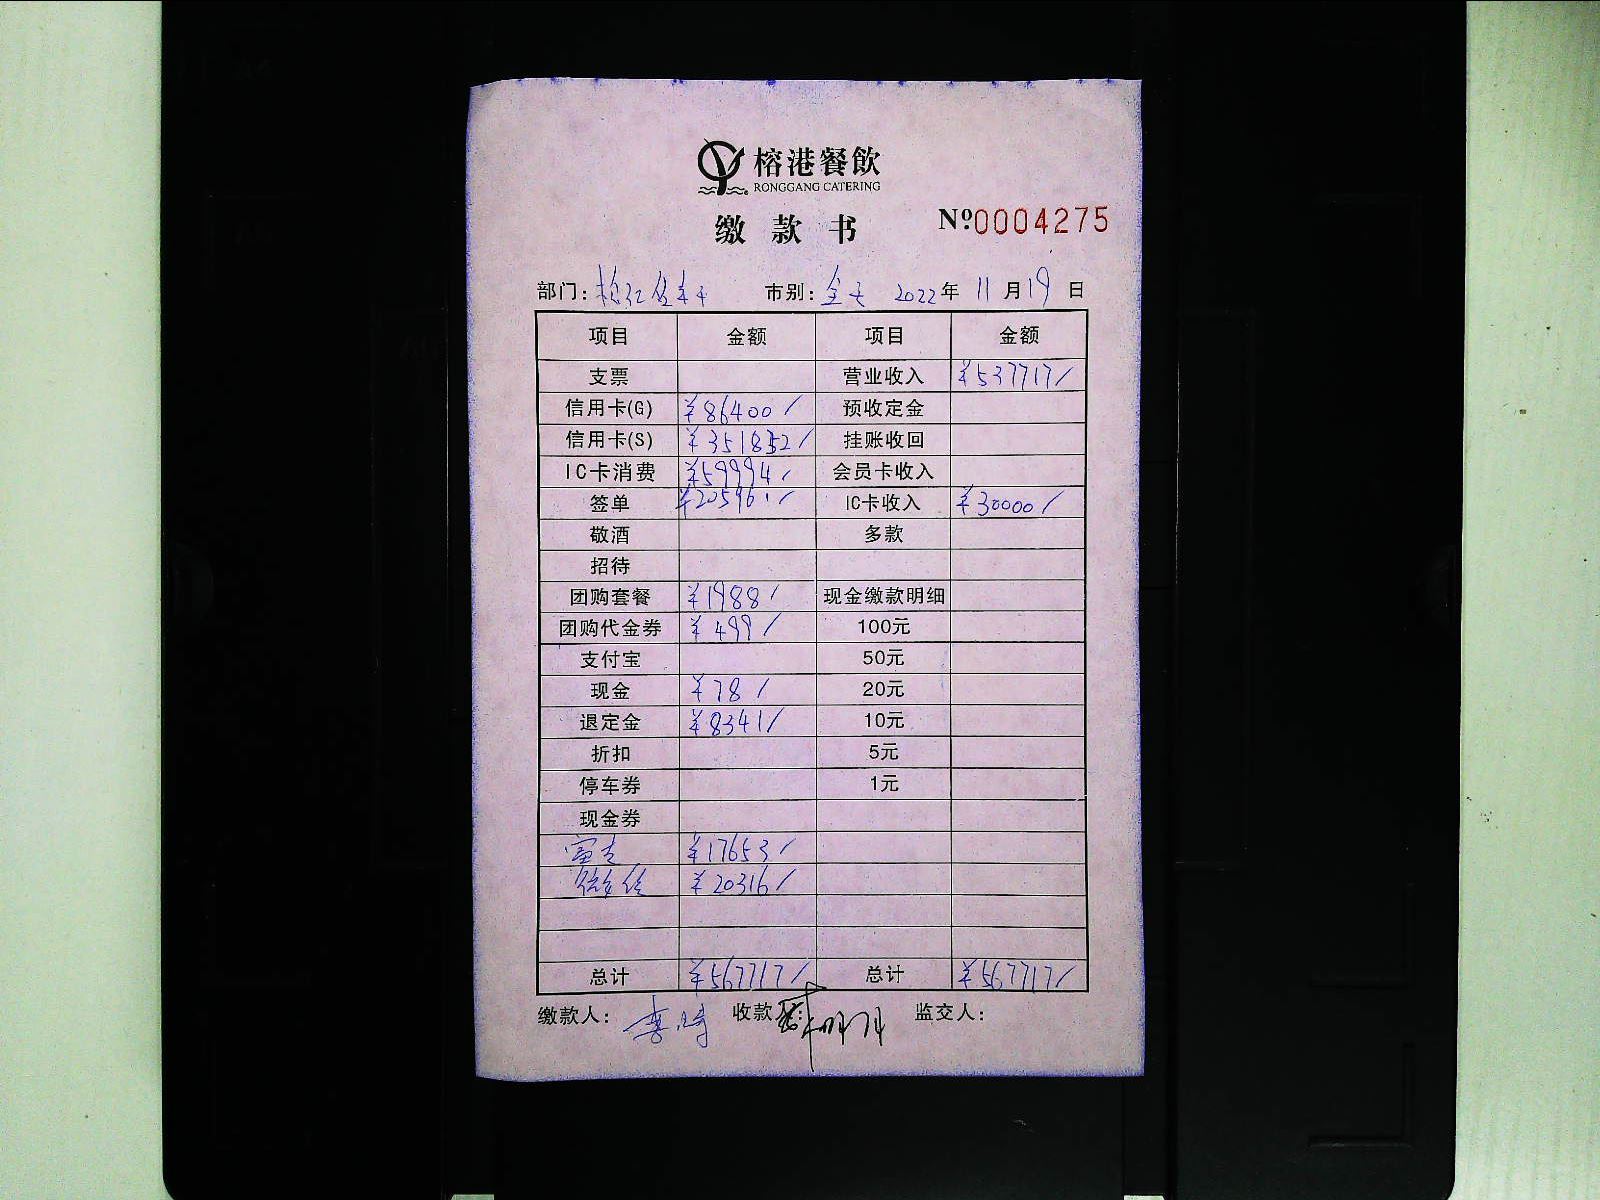 榕港餐飲
RONGGANG CATERING
缴款书 №0004275
部门: 市别:全天 2022年11月19日
项目 金额 项目 金额
支票 营业收入 ¥537717/
信用卡(G) ¥86400/ 预收定金
信用卡(S) ¥351852/ 挂账收回
IC卡消费 ¥59994/ 会员卡收入
签单 ¥20596/ IC卡收入 ¥30000/
敬酒 多款
招待
团购套餐 ¥1988/ 现金缴款明细
团购代金券 ¥499/ 100元
支付宝 50元
现金 ¥78/ 20元
退定金 ¥8341/ 10元
折扣 5元
停车券 1元
现金券
¥17653/
¥20316/
总计 ¥567717/ 总计 ¥567717/
缴款人: 收款人: 监交人: